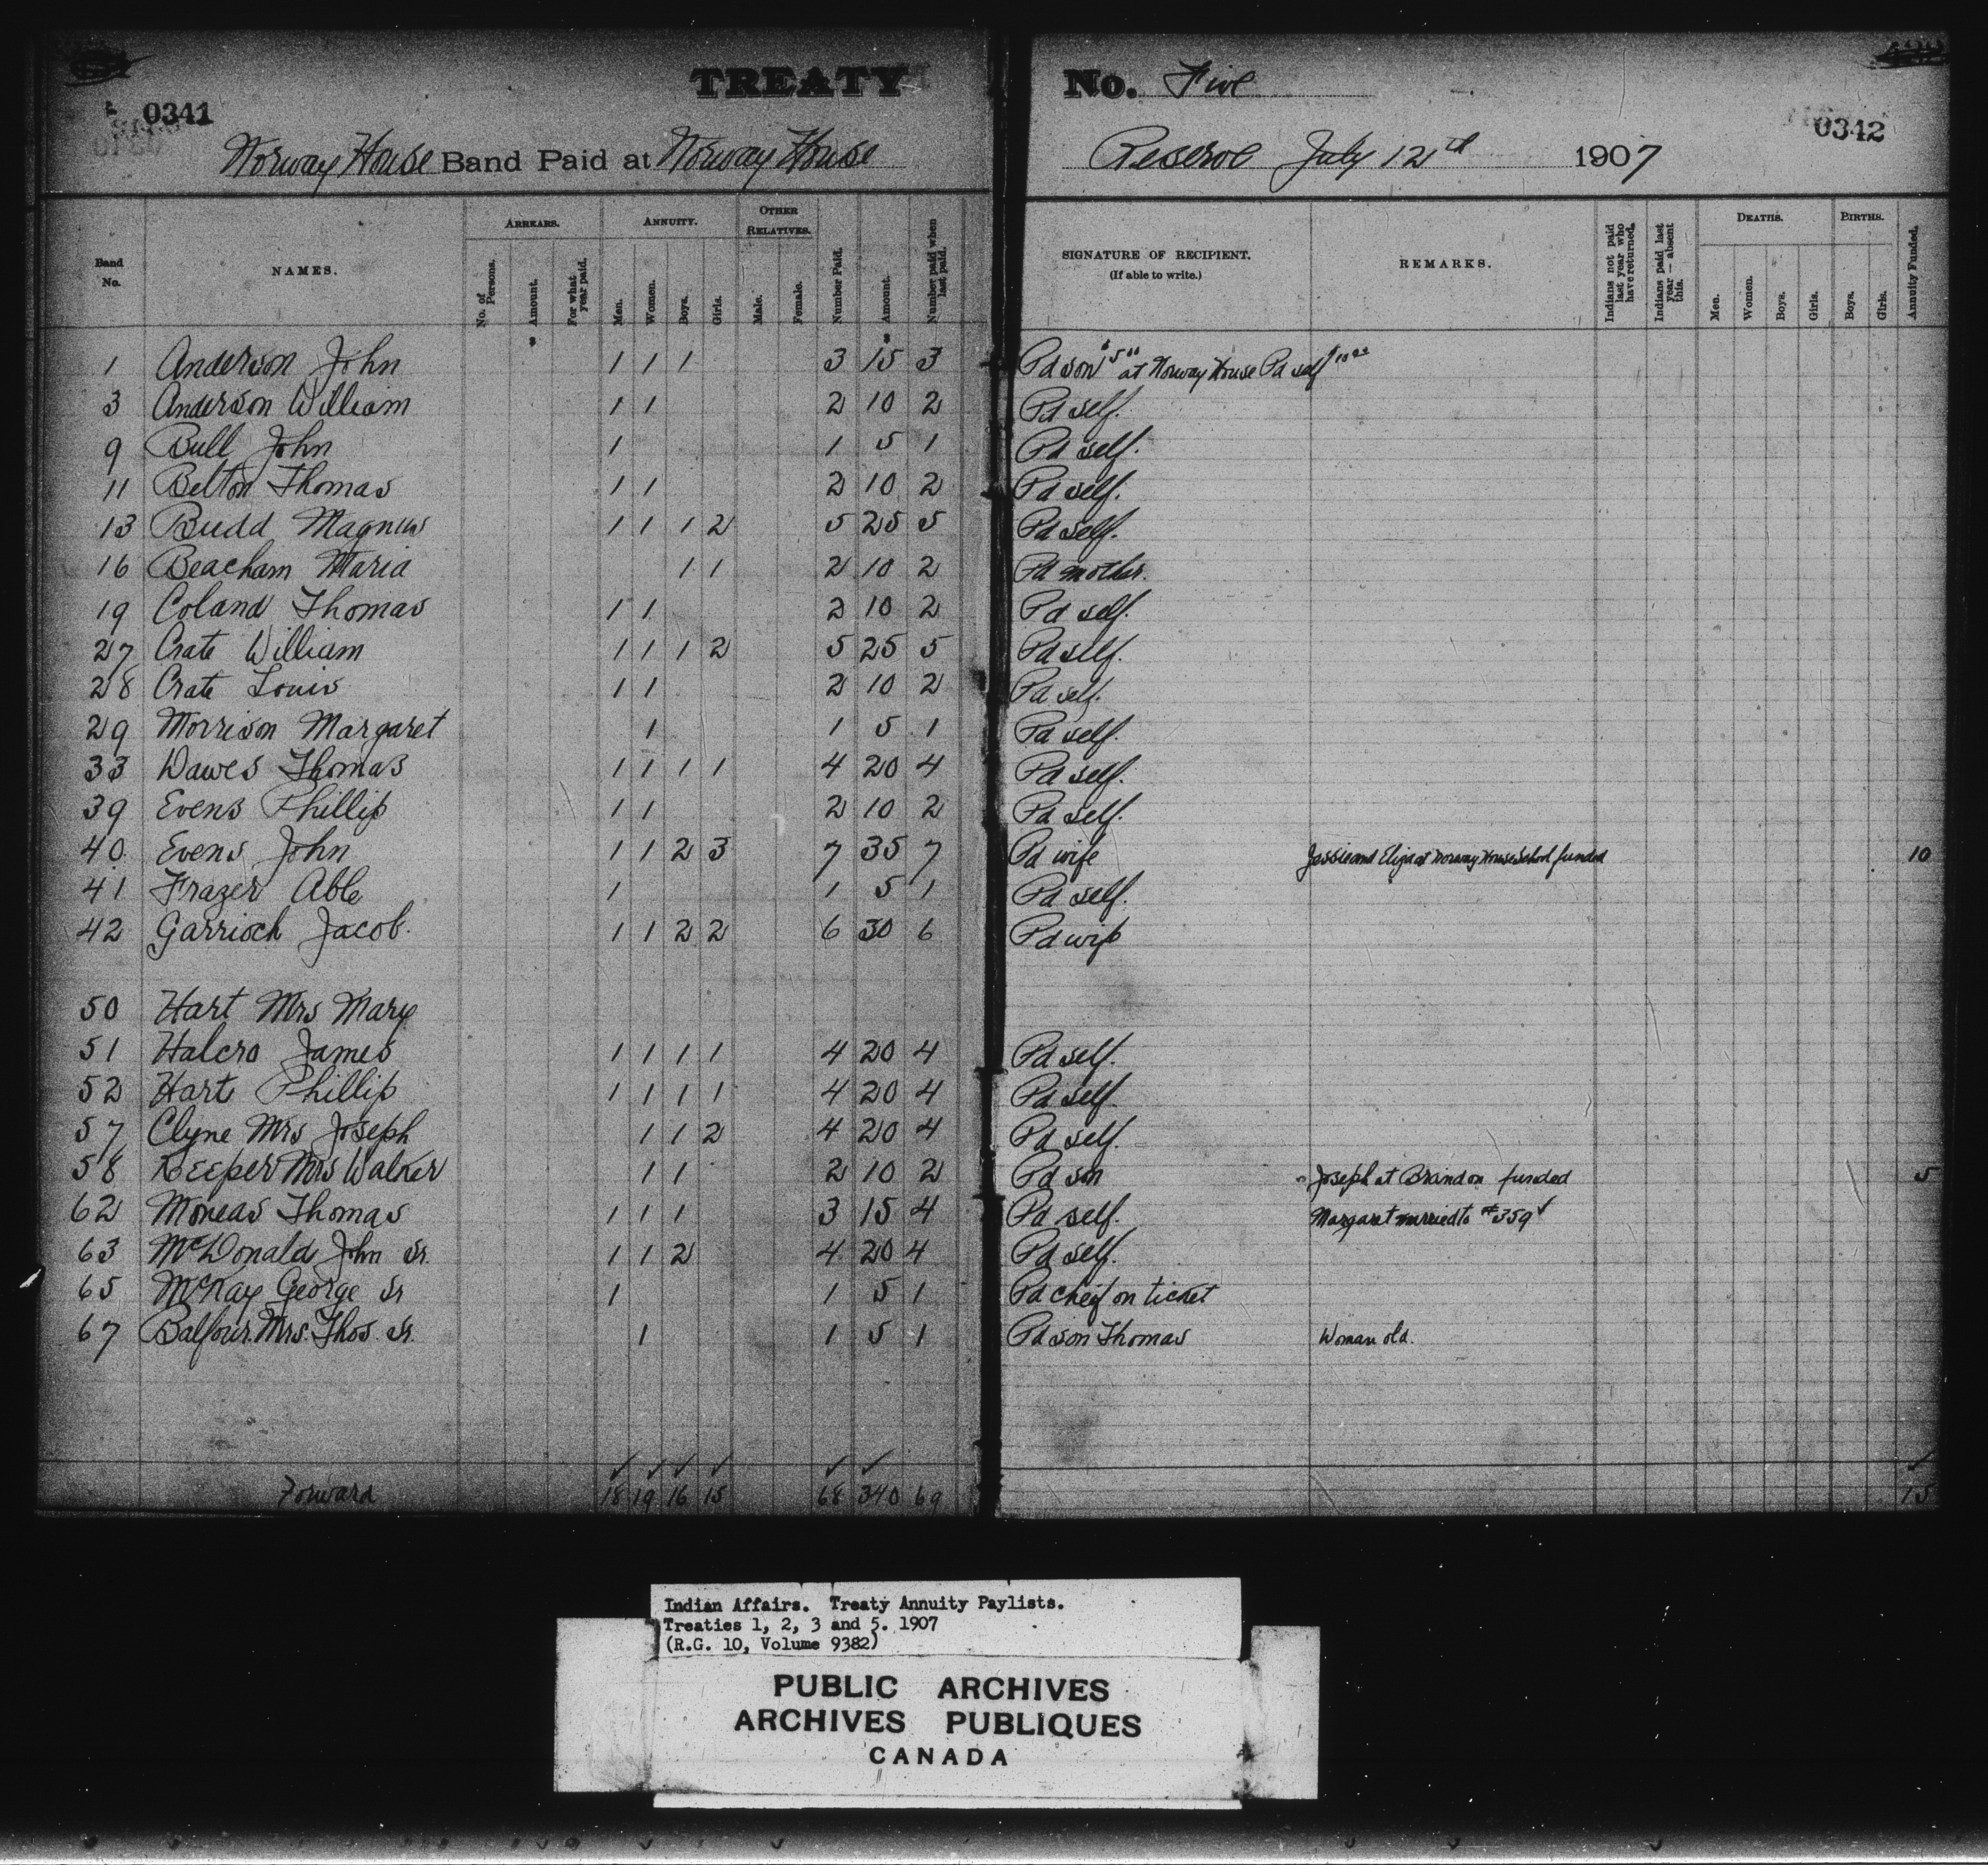 TREATY No. Five
0341
0342
Norway House Band Paid at Norway House Reserve July 12th 1907
Band No. NAMES. ARREARS. No. of Persons. Amount. For what year paid. ANNUITY. Men. Women. Boys. Girls. OTHER RELATIVES. Male. Female. Number Paid. Amount. Number paid when last paid. SIGNATURE OF RECIPIENT. (If able to write.) REMARKS. Indians not paid last year who have returned. Indians paid last year — absent this. DEATHS. Men. Women. Boys. Girls. BIRTHS. Boys. Girls. Annuity Funded.
1 Anderson John 1 1 1 3 15 3 Pd son $5 at Norway House Pd self $10
3 Anderson William 1 1 2 10 2 Pd self.
9 Bull John 1 1 5 1 Pd self.
11 Belton Thomas 1 1 2 10 2 Pd self.
13 Budd Magnus 1 1 1 2 5 25 5 Pd self.
16 Beacham Maria 1 1 2 10 2 Pd mother.
19 Coland Thomas 1 1 2 10 2 Pd self.
27 Crate William 1 1 1 2 5 25 5 Pd self.
28 Crate Louis 1 1 2 10 2 Pd self.
29 Morrison Margaret 1 1 5 1 Pd self.
33 Dawes Thomas 1 1 1 1 4 20 4 Pd self.
39 Evens Phillip 1 1 2 10 2 Pd self.
40 Evens John 1 1 2 3 7 35 7 Pd wife Jessie and Eliza at Norway House School funded 10
41 Frazer Able 1 1 5 1 Pd self.
42 Garrioch Jacob. 1 1 2 2 6 30 6 Pd wife
50 Hart Mrs Mary
51 Halcro James 1 1 1 1 4 20 4 Pd self.
52 Hart Phillip 1 1 1 1 4 20 4 Pd self.
57 Clyne Mrs Joseph 1 1 2 4 20 4 Pd self.
58 Keeper Mrs Walker 1 1 2 10 2 Pd son Joseph at Brandon funded 5
62 Moneas Thomas 1 1 1 3 15 4 Pd self. Margaret married to #359 ✓
63 McDonald John Sr. 1 1 2 4 20 4 Pd self.
65 McKay George Sr 1 1 5 1 Pd cheif on ticket
67 Balfour Mrs. Thos. Sr. 1 1 5 1 Pd son Thomas Woman old.
Forward 18 19 16 15 68 340 69 15
Indian Affairs. Treaty Annuity Paylists.
Treaties 1, 2, 3 and 5. 1907
(R.G. 10, Volume 9382)
PUBLIC ARCHIVES
ARCHIVES PUBLIQUES
CANADA